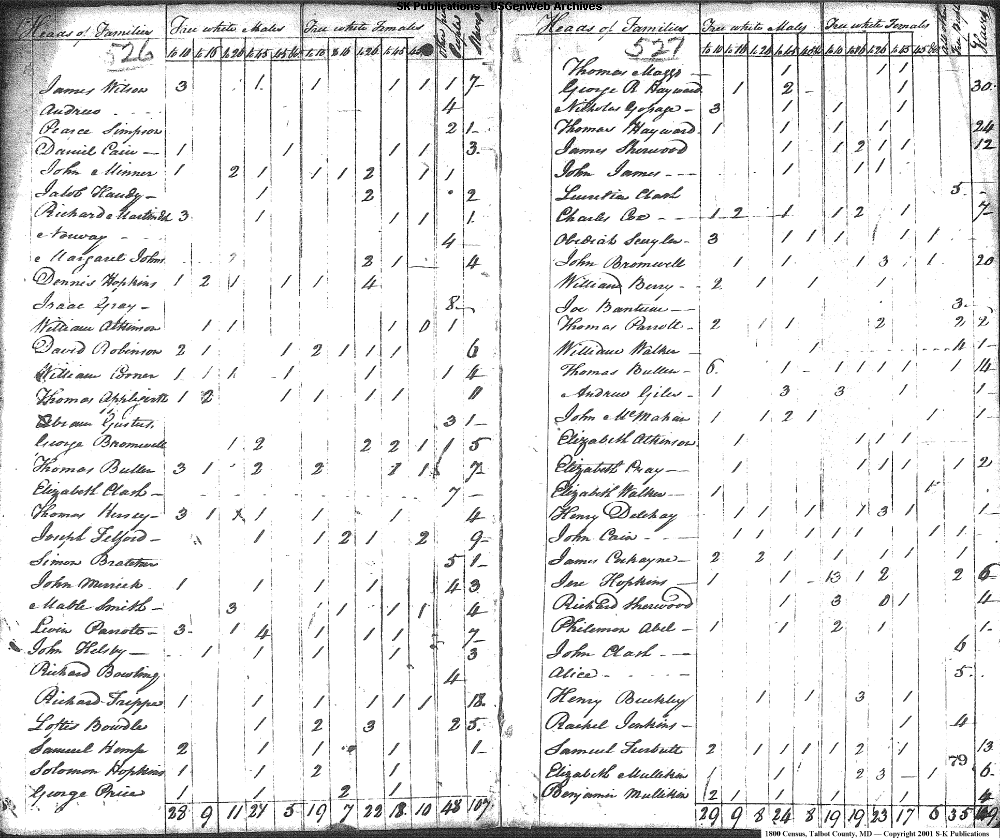 SK Publications - USGenWeb Archives
Heads of Families Free white Males Free white Females
526
James Wilson 3 1 1 1 1 1 7
Andrew 4
Pearce Simpson 2 1
Daniel Cain 1 1 1 1 3
John Minner 1 2 1 1 1 2 1 1
Jacob Handy 1 2 2
Richard 3 1 1 1 1
Norway 4
Margaret Johns 2 1 4
Dennis Hopkins 1 2 1 1 1 4
Isaac Gray 8
William Atkinson 1 1 1 0 1
David Robinson 2 1 1 2 1 1 1 6
William Corner 1 1 1 1 1 1 4
Thomas Applegarth 1 2 1 1 1 1
Gusters 3 1
George Bromwell 1 2 2 2 1 1 5
Thomas Bullen 3 1 2 2 1 1 7
Elizabeth Clash 7
Thomas Hersey 3 1 1 1 1 1 4
Joseph Telford 1 1 2 1 2 9
Simon 5 1
John Merrick 1 1 1 1 4 3
Mable Smith 3 1 1 1 4
Levin Parrott 3 1 4 1 1 1 7
John Kelsby 1 1 1 1 1 3
Richard Bowling 4
Richard Trippe 1 1 1 1 1 1 18
Loftis Bowdle 1 2 3 2 5
Samuel Kemp 2 1 1 1 1
Solomon Hopkins 1 1 2 1
George Price 1 1 2 1
28 9 11 21 5 19 7 22 18 10 48 107
Heads of Families Free white Males Free white Females
527
Thomas 1 1 1
George R Hayward 1 2 1 30
Nicholas 3 1 1 1
Thomas Hayward 1 1 1 1 24
James Sherwood 1 1 2 1 1 12
John James 1 1 1
Clash 5
Charles Cox 1 2 1 1 2 1 7
Obediah 3 1 1 1 1 1 1
John Bromwell 1 1 1 1 3 1 20
William Berry 2 1 1 1
Joe 3
Thomas Parrott 2 1 1 2 2 2
William Walker 1 4 1
Thomas Bullen 6 1 1 1 1 1 1 14
Andrew Giles 1 3 3 1 1
John McMahan 1 1 2 1 1 1
Elizabeth Atkinson 1 1 1 1
Elizabeth Cray 1 1 1 1 1 2
Elizabeth Walker 1
Henry Delehay 1 1 1 1 1 3 1 1
John Cain 1 1 1 1 1 1 1 1
James Cockayne 2 2 1 1 1 1 1
Jere Hopkins 1 1 13 1 2 2 6
Richard Sherwood 1 3 0 1 4
Philemon Abel 1 1 2 1 1
John Clash 6
Alice 5
Henry Buckley 1 1 3 1
Rachel Jenkins 4
Samuel Turbutt 2 1 1 1 1 2 1 13
79
Elizabeth Mullikin 1 1 2 3 1 6
Benjamin Mullikin 2 1 1 1 1 1 4
29 9 8 24 8 19 19 23 17 6 35
1800 Census, Talbot County, MD — Copyright 2001 S-K Publications